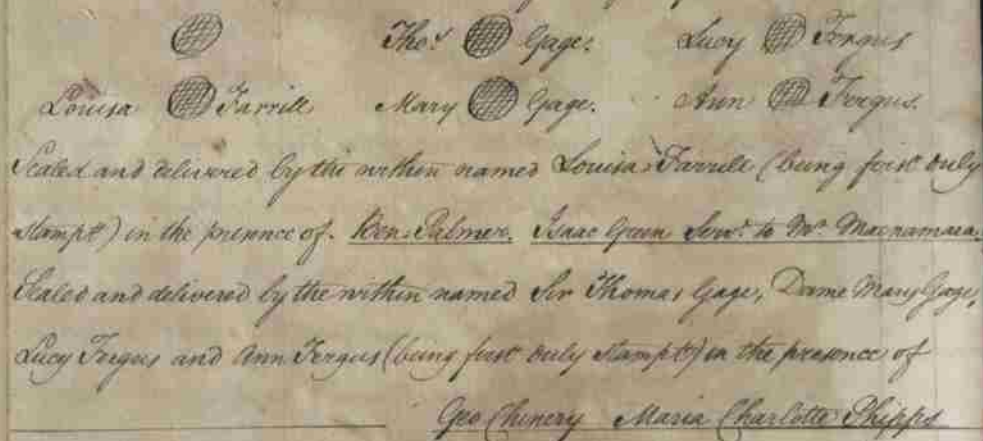 Thos. Gage. Lucy Fergus
Louisa Farrill Mary Gage. Ann Fergus.
Sealed and delivered by the within named Louisa Farrill (being first duly
stampt) in the presence of. Ben: Palmer. Isaac Green Servt. to Mr. Macnamara.
Sealed and delivered by the within named Sir Thomas Gage, Dame Mary Gage,
Lucy Fergus and Ann Fergus (being first duly stampt) in the presence of
Geo Chinery Maria Charlotte Phipps